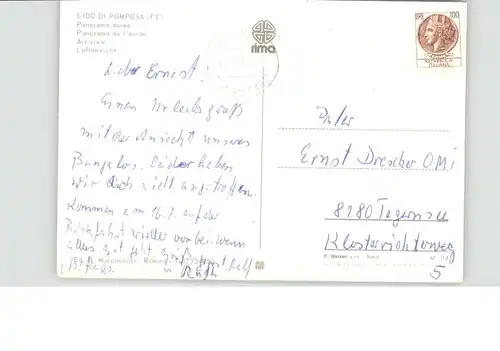 LIDO DI POMPOSA (FE)
Panorama aereo
Panorama de l'avion
Air view
Luftansicht
rima
LIRE 100
REPUBBLICA
ITALIANA
Lieber Ernest!
Einen Urlaubsgruß
mit der Ansicht unseres
Bungalos. Leider haben
wir Dich nicht angetroffen.
Kommen am 16.7. auf der
Rückfahrt wieder vorbei wenn
alles gut geht. Gruß
Pater
Ernst Drescher OMI
8180 Tegernsee
Klosterrichterweg
5